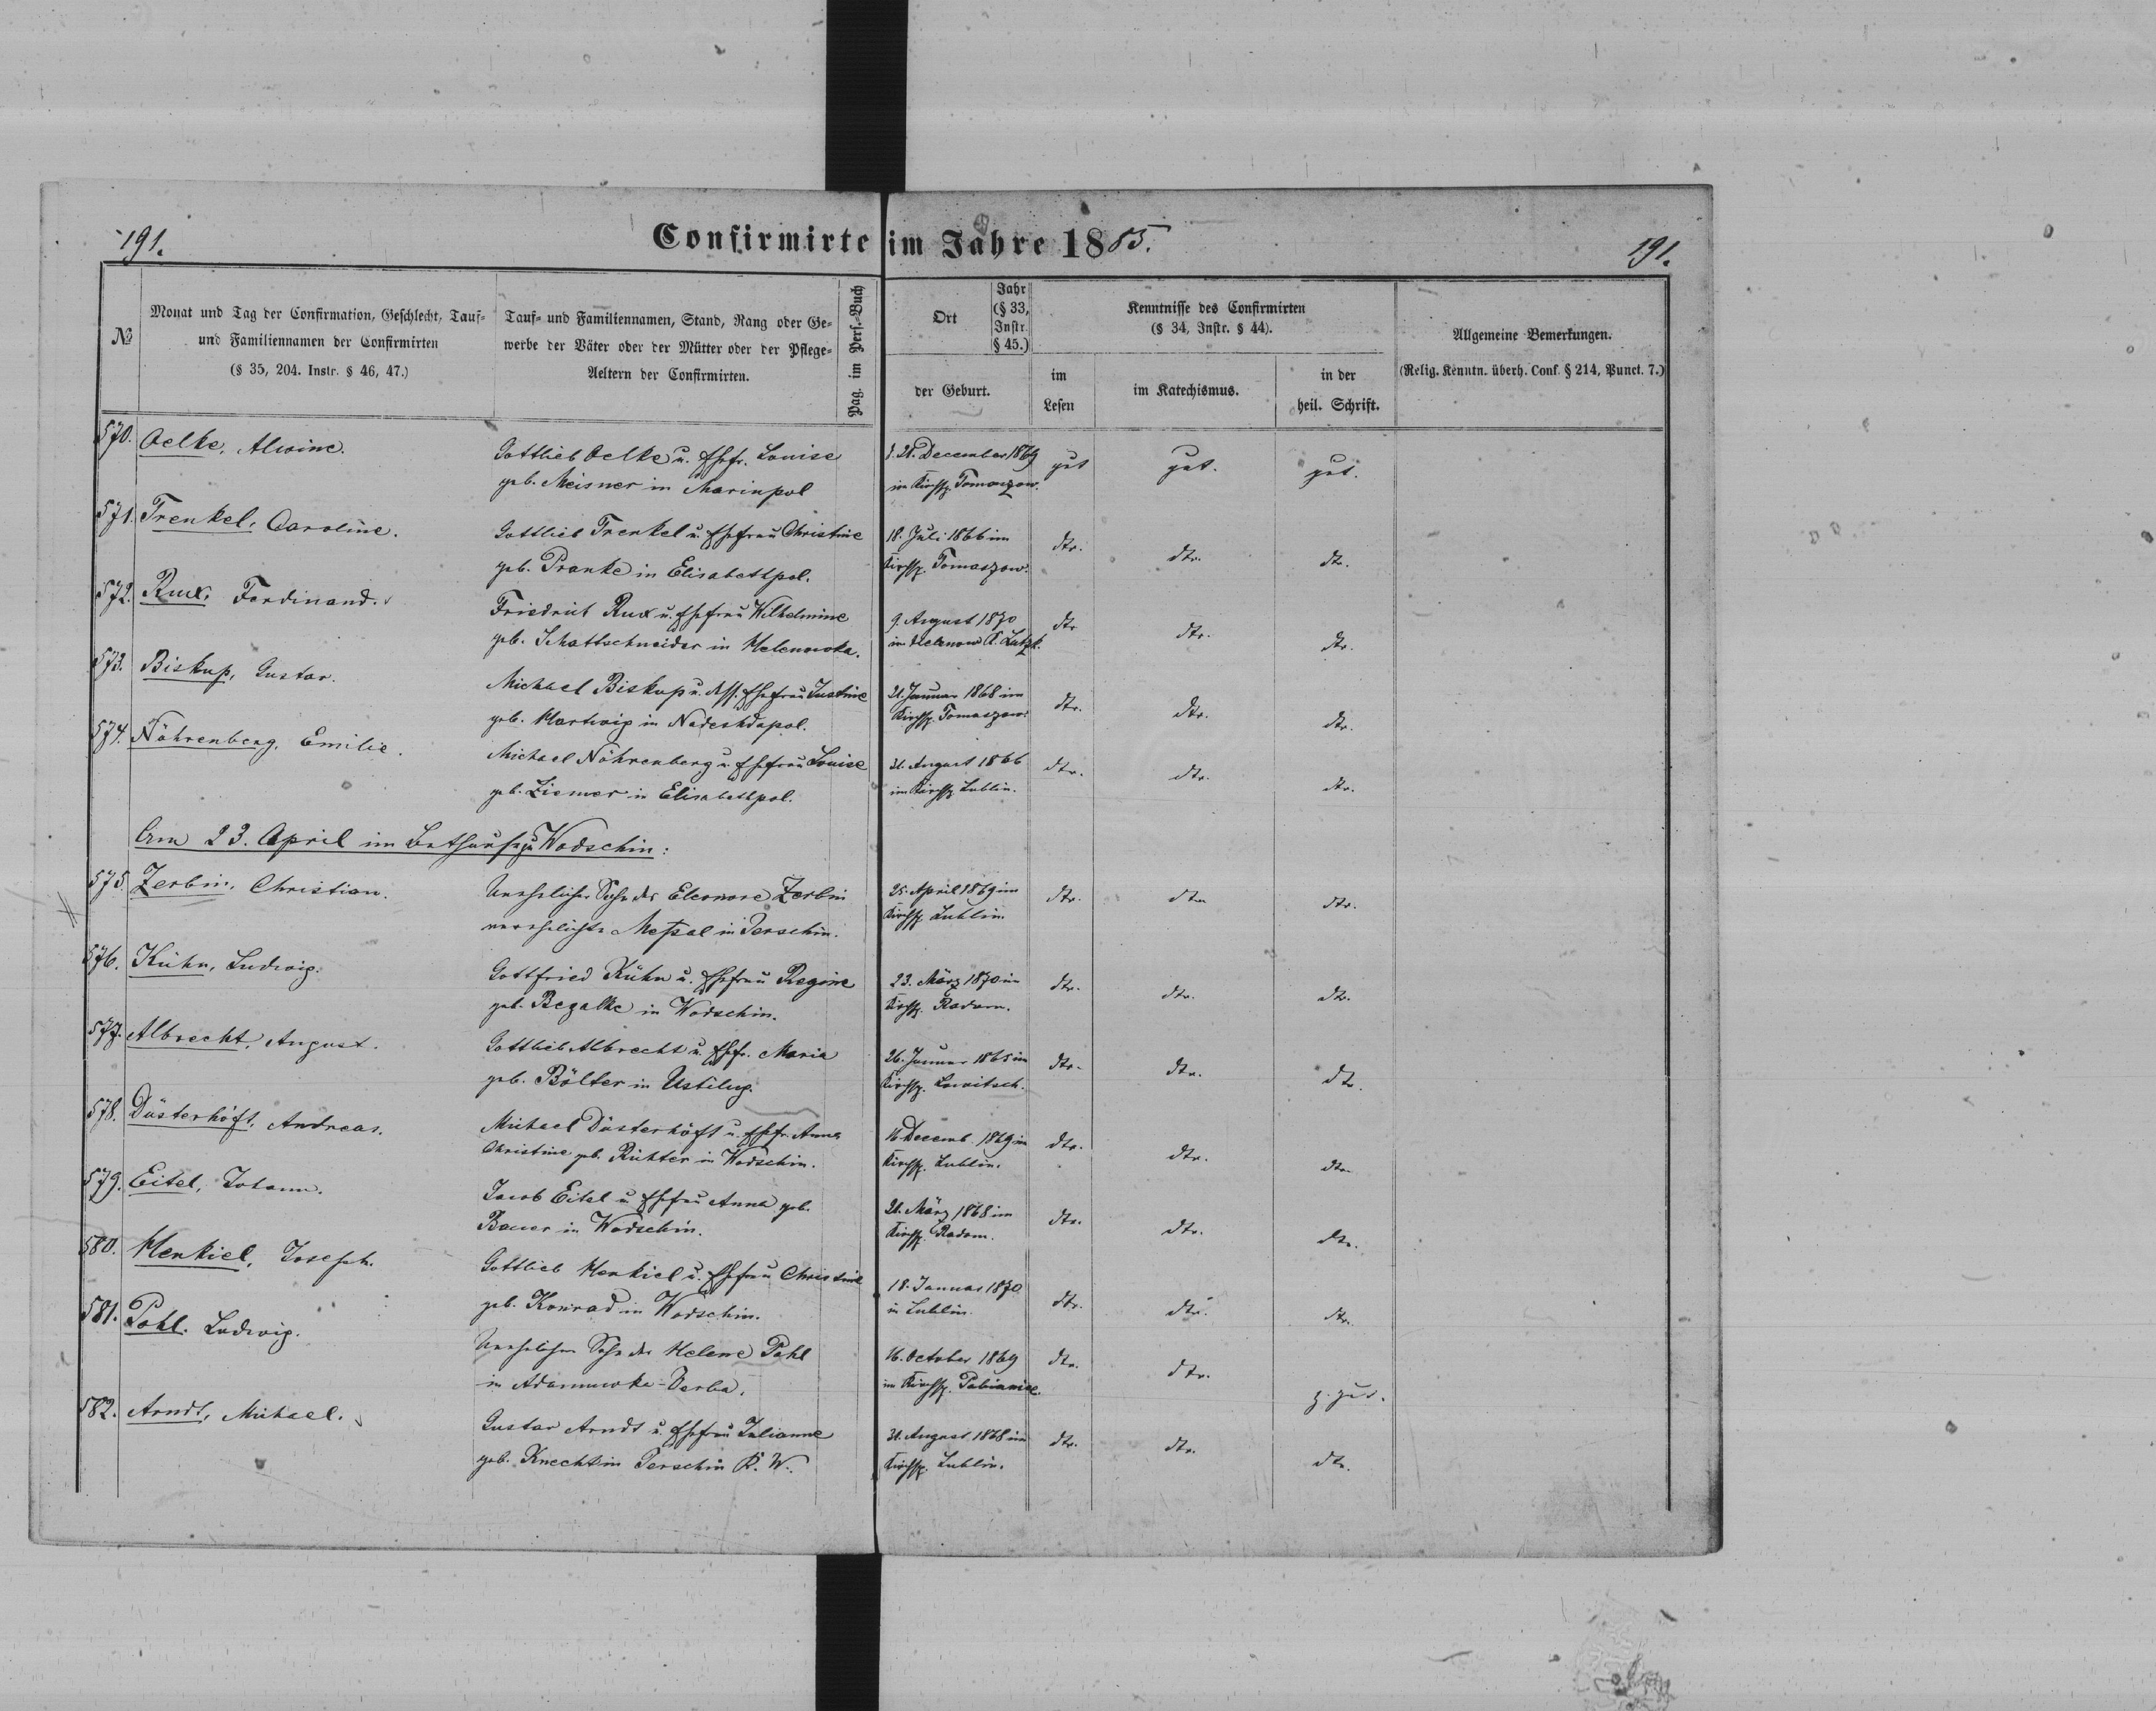 191.
Confirmirte im Jahre 1885.
191.
№
Monat und Tag der Confirmation, Geschlecht, Tauf-
und Familiennamen der Confirmirten
(§ 35, 204. Instr. § 46, 47.)
Tauf- und Familiennamen, Stand, Rang oder Ge-
werbe der Väter oder der Mütter oder der Pflege-
Aeltern der Confirmirten.
Pag. im Pers.-Buch
Ort
Jahr
(§ 33,
Instr.
§ 45.)
der Geburt.
Kenntnisse des Confirmirten
(§ 34, Instr. § 44).
im
Lesen
im Katechismus.
in der
heil. Schrift.
Allgemeine Bemerkungen.
(Relig. Kenntn. überh. Conf. § 214, Punct. 7.)
570. Oelke, Alwine.
Gottlieb Oelke u. Ehefr. Louise
geb. Meisner in Marinpol
21. December 1869
im Kirchsp. Tomaszow.
gut
gut.
gut.
571. Trenkel, Caroline.
Gottlieb Trenkel u. Ehefrau Christine
geb. Pranke in Elisabethpol.
18. Juli 1866 im
Kirchsp. Tomaszow.
dto.
dto.
dto.
572. Rux, Ferdinand.
Friedrich Rux u. Ehefrau Wilhelmine
geb. Schattschneider in Helenowka.
9. August 1870
in Helenow K. Lutzk.
dto
dto.
dto.
573. Biskup, Gustav.
Michael Biskup u. dess. Ehefrau Justine
geb. Hartwig in Nadeshdapol.
21. Januar 1868 im
Kirchsp. Tomaszow.
dto.
dto.
dto.
574. Nöhrenberg, Emilie.
Michael Nöhrenberg u. Ehefrau Louise
geb. Ziemer in Elisabethpol.
31. August 1866
im Kirchsp. Lublin.
dto.
dto.
dto.
Am 23. April im Bethause zu Wodschin:
575. Zerbin, Christian.
Unehelicher Sohn der Eleonore Zerbin
verehelichte in Terschin.
25. April 1869 im
Kirchsp. Lublin.
dto.
dto
dto.
576. Kühn, Ludwig.
Gottfried Kühn u. Ehefrau Regine
geb. Begalke in Wodschin.
23. März 1870 im
Kirchsp. Radom.
dto.
dto.
dto.
577. Albrecht, August.
Gottlieb Albrecht u. Ehefr. Maria
geb. Bölter in Ustilug.
26. Januar 1865 im
Kirchsp. Lowitsch.
dto.
dto.
dto.
578. Düsterhöft, Andreas.
Michael Düsterhöft u. Ehefr. Anna
Christine geb. Richter in Wodschin.
16 Decemb. 1869 im
Kirchsp. Lublin.
dto.
dto.
dto
579. Eitel, Johann.
Jacob Eitel u. Ehefrau Anna geb.
Bauer in Wodschin.
21. März 1868 im
Kirchsp. Radom.
dto.
dto.
dto.
580. Henkiel, Joseph.
Gottlieb Henkiel u. Ehefrau Christine
geb. Konrad in Wodschin.
18. Januar 1870
in Lublin.
dto.
dto.
dto.
581. Pohl. Ludwig.
Unehelicher Sohn der Helene Pohl
in Adamowka-Verba.
16. October 1869
im Kirchsp. Pabianice.
dto.
dto.
z. gut.
582. Arndt, Michael.
Gustav Arndt u. Ehefrau Julianne
geb. Knecht in Terschin K. W.
31. August 1868 im
Kirchsp. Lublin.
dto.
dto.
dto.